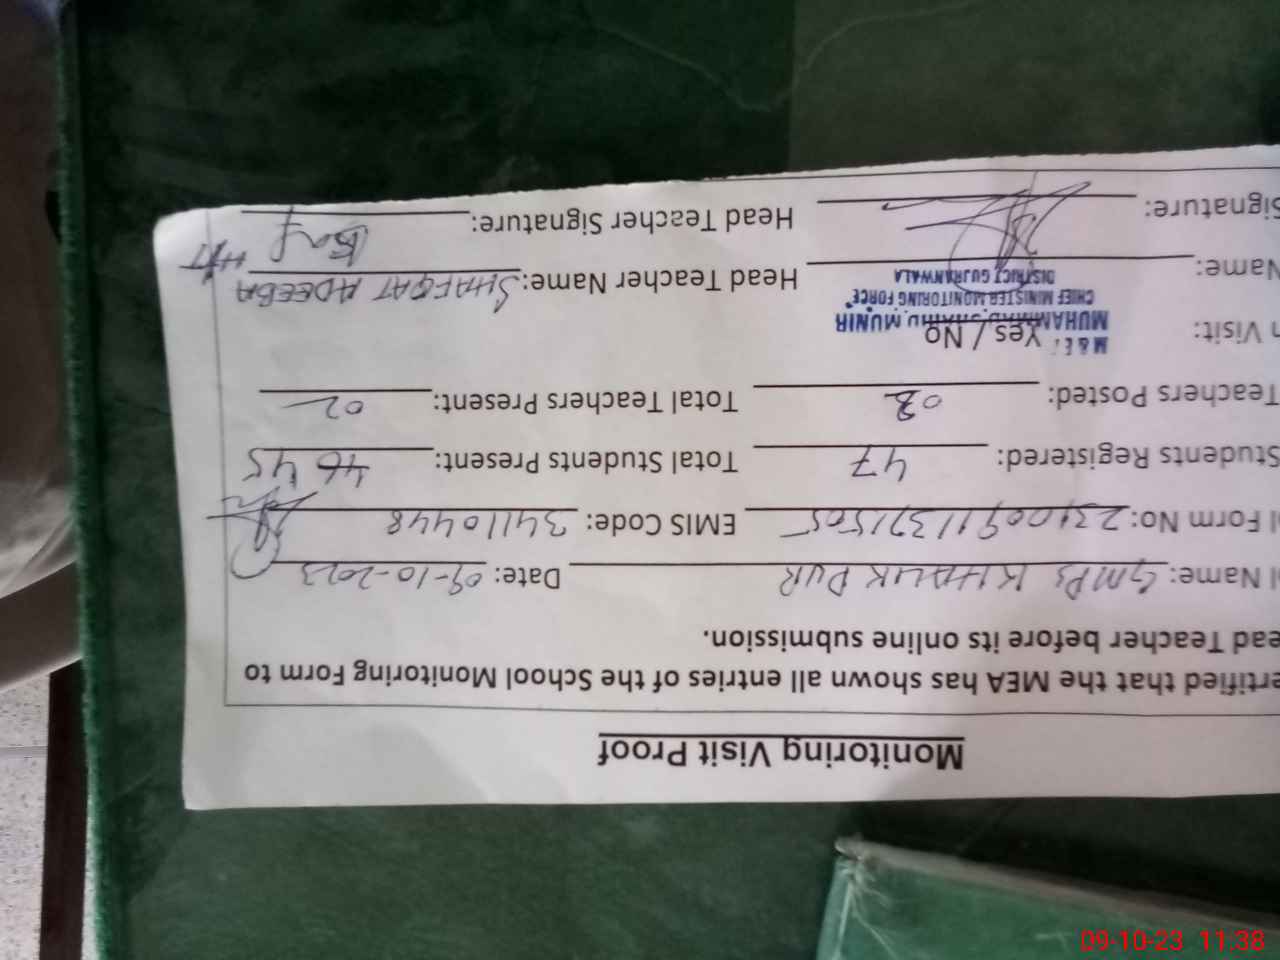 Monitoring Visit Proof
ertified that the MEA has shown all entries of the School Monitoring Form to
ead Teacher before its online submission.
l Name: GMPS KHALIK PUR Date: 09-10-2023
l Form No: 23100911371505 EMIS Code: 34110448
Students Registered: 47 Total Students Present: 46 45
Teachers Posted: 02 Total Teachers Present: 02
n Visit: Yes / No
MUHAMMAD SHAHID MUNIR
CHIEF MINISTER MONITORING FORCE
DISTRICT GUJRANWALA
Name: Head Teacher Name: SHAFQAT ADEEBA
Signature: Head Teacher Signature:
09-10-23 11:38